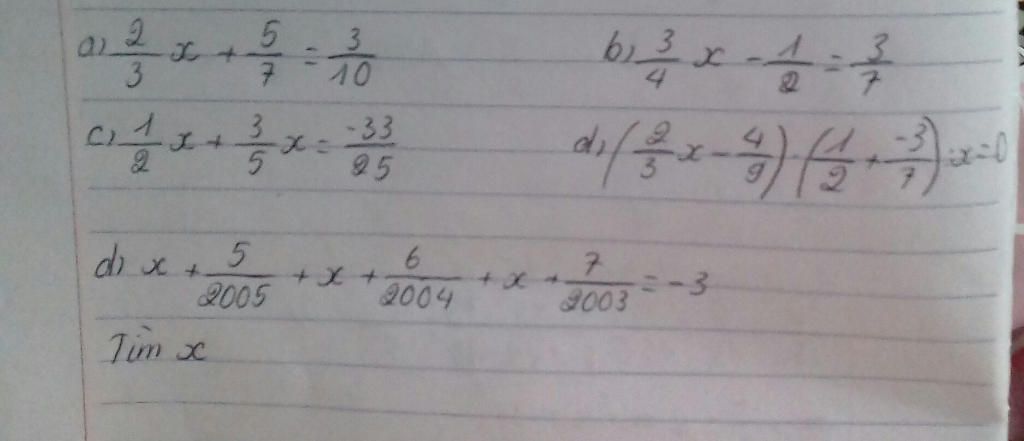 a) 2/3 x + 5/7 = 3/10 b) 3/4 x - 1/2 = 3/7
c) 1/2 x + 3/5 x = -33/25 d) (2/3 x - 4/9) . (1/2 + -3/7) : x = 0
d) x + 5/2005 + x + 6/2004 + x + 7/2003 = -3
Tìm x